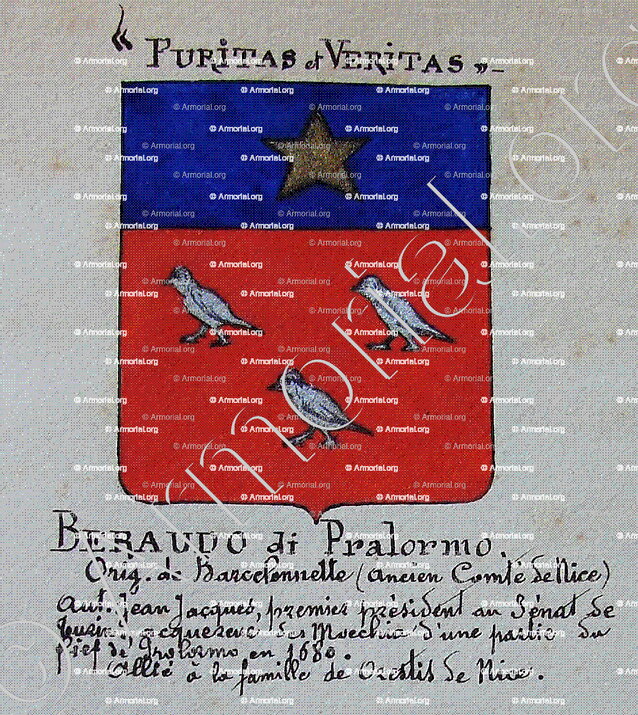 “ PURITAS et VERITAS „_
BERAUDO di Pralormo.
Orig. de Barcelonnette (ancien Comté de Nice)
Aut. Jean Jacques, premier président au Sénat de
Turin, acquereur des Mocchia d'une partie du
fief de Prolormo en 1680.
Allié à la famille de Orestis de Nice.
© Armorial.org